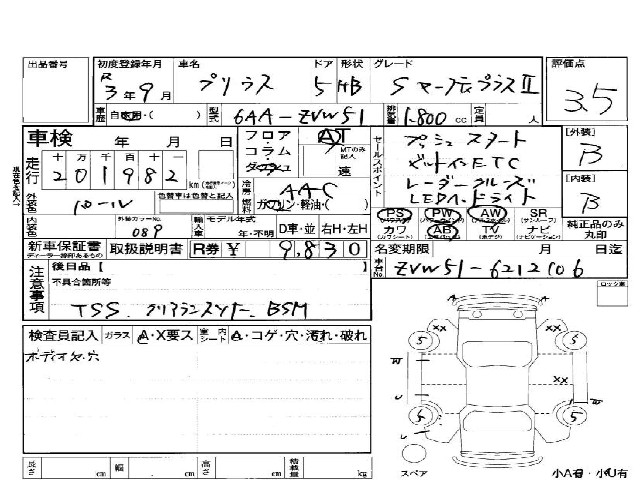 出品番号
初度登録年月 車名 ドア 形状 グレード 評価点
R 3年9月 プリウス 5 HB SツーリングプラスⅡ 3.5
車歴 自家用・( ) 型式 6AA-ZVW51 排気量 1.800 cc 定員 人
車検 年 月 日
フロア・コラム・ダッシュ AT MTのみ記入 速
セールスポイント プッシュスタート
ビルトインETC
レーダークルーズ
LEDヘッドライト
[外装] B
[内装] B
走行 十万千百十一
201982 km
冷房 AAC
燃料 ガソリン・軽油・( )
外装色 パール 色替車は色替と記入
内装色 外装カラーNo. 089 輸入車 モデル年式 年・不明 D車・並 右H・左H
PS (パワステ) PW AW SR (サンルーフ)
カワ (カワシート) AB TV (ポータブル) ナビ (ナビゲーション)
純正品のみ丸印
新車保証書 ディーラー様印あるもの 取扱説明書 R券 ¥ 9,830
名変期限 月 日迄
車台No. ZVW51-6212106
注意事項 後日品【 】
不具合箇所等
TSS. クリアランスソナー BSM
ロック車
検査員記入 ガラス A・X要ス 室内 シート A・コゲ・穴・汚れ・破れ
オーディオ欠穴
5 XX 5
W XX W
5 5
スペア
小A有・小U有
長さ cm 幅 cm 高さ cm 積載量 kg